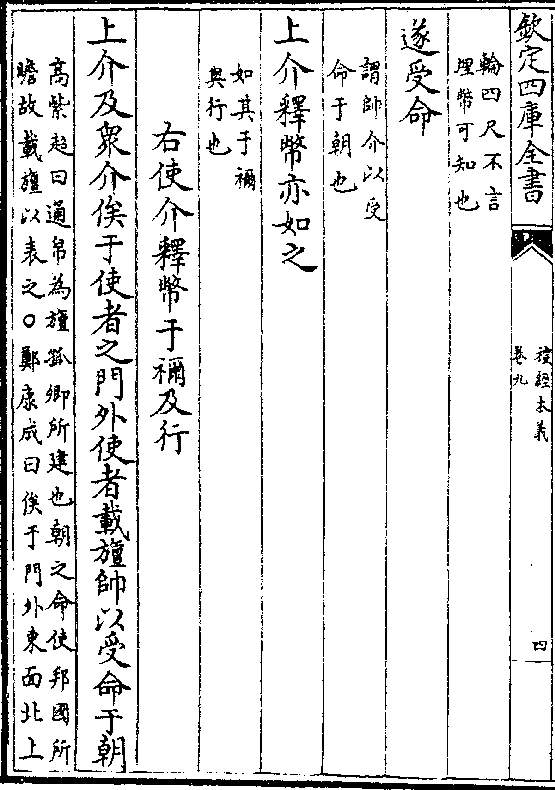 欽定四庫全書
禮經本義
卷九
四
輪四尺不言
埋幣可知也
遂受命
謂帥介以受
命于朝也
上介釋幣亦如之
如其于禰
與行也
右使介釋幣于禰及行
上介及衆介俟于使者之門外使者載旜帥以受命于朝
高紫超曰通帛為旜孤卿所建也朝之命使邦國所
瞻故載旜以表之○鄭康成曰俟于門外東面北上